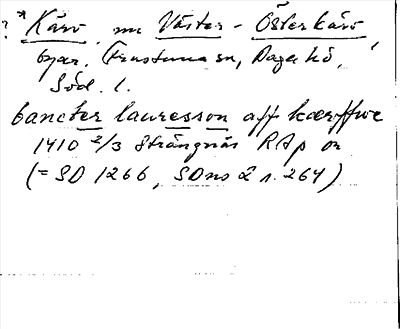 ? * Kärv, nu Väster- Österkärv
byar. Frustuna sn, Daga hd,
Söd. l.
bancter lauresson aff kærffwe
1410 2/3 Strängnäs RAp or
(= SD 1266, SDns 2 s. 264)